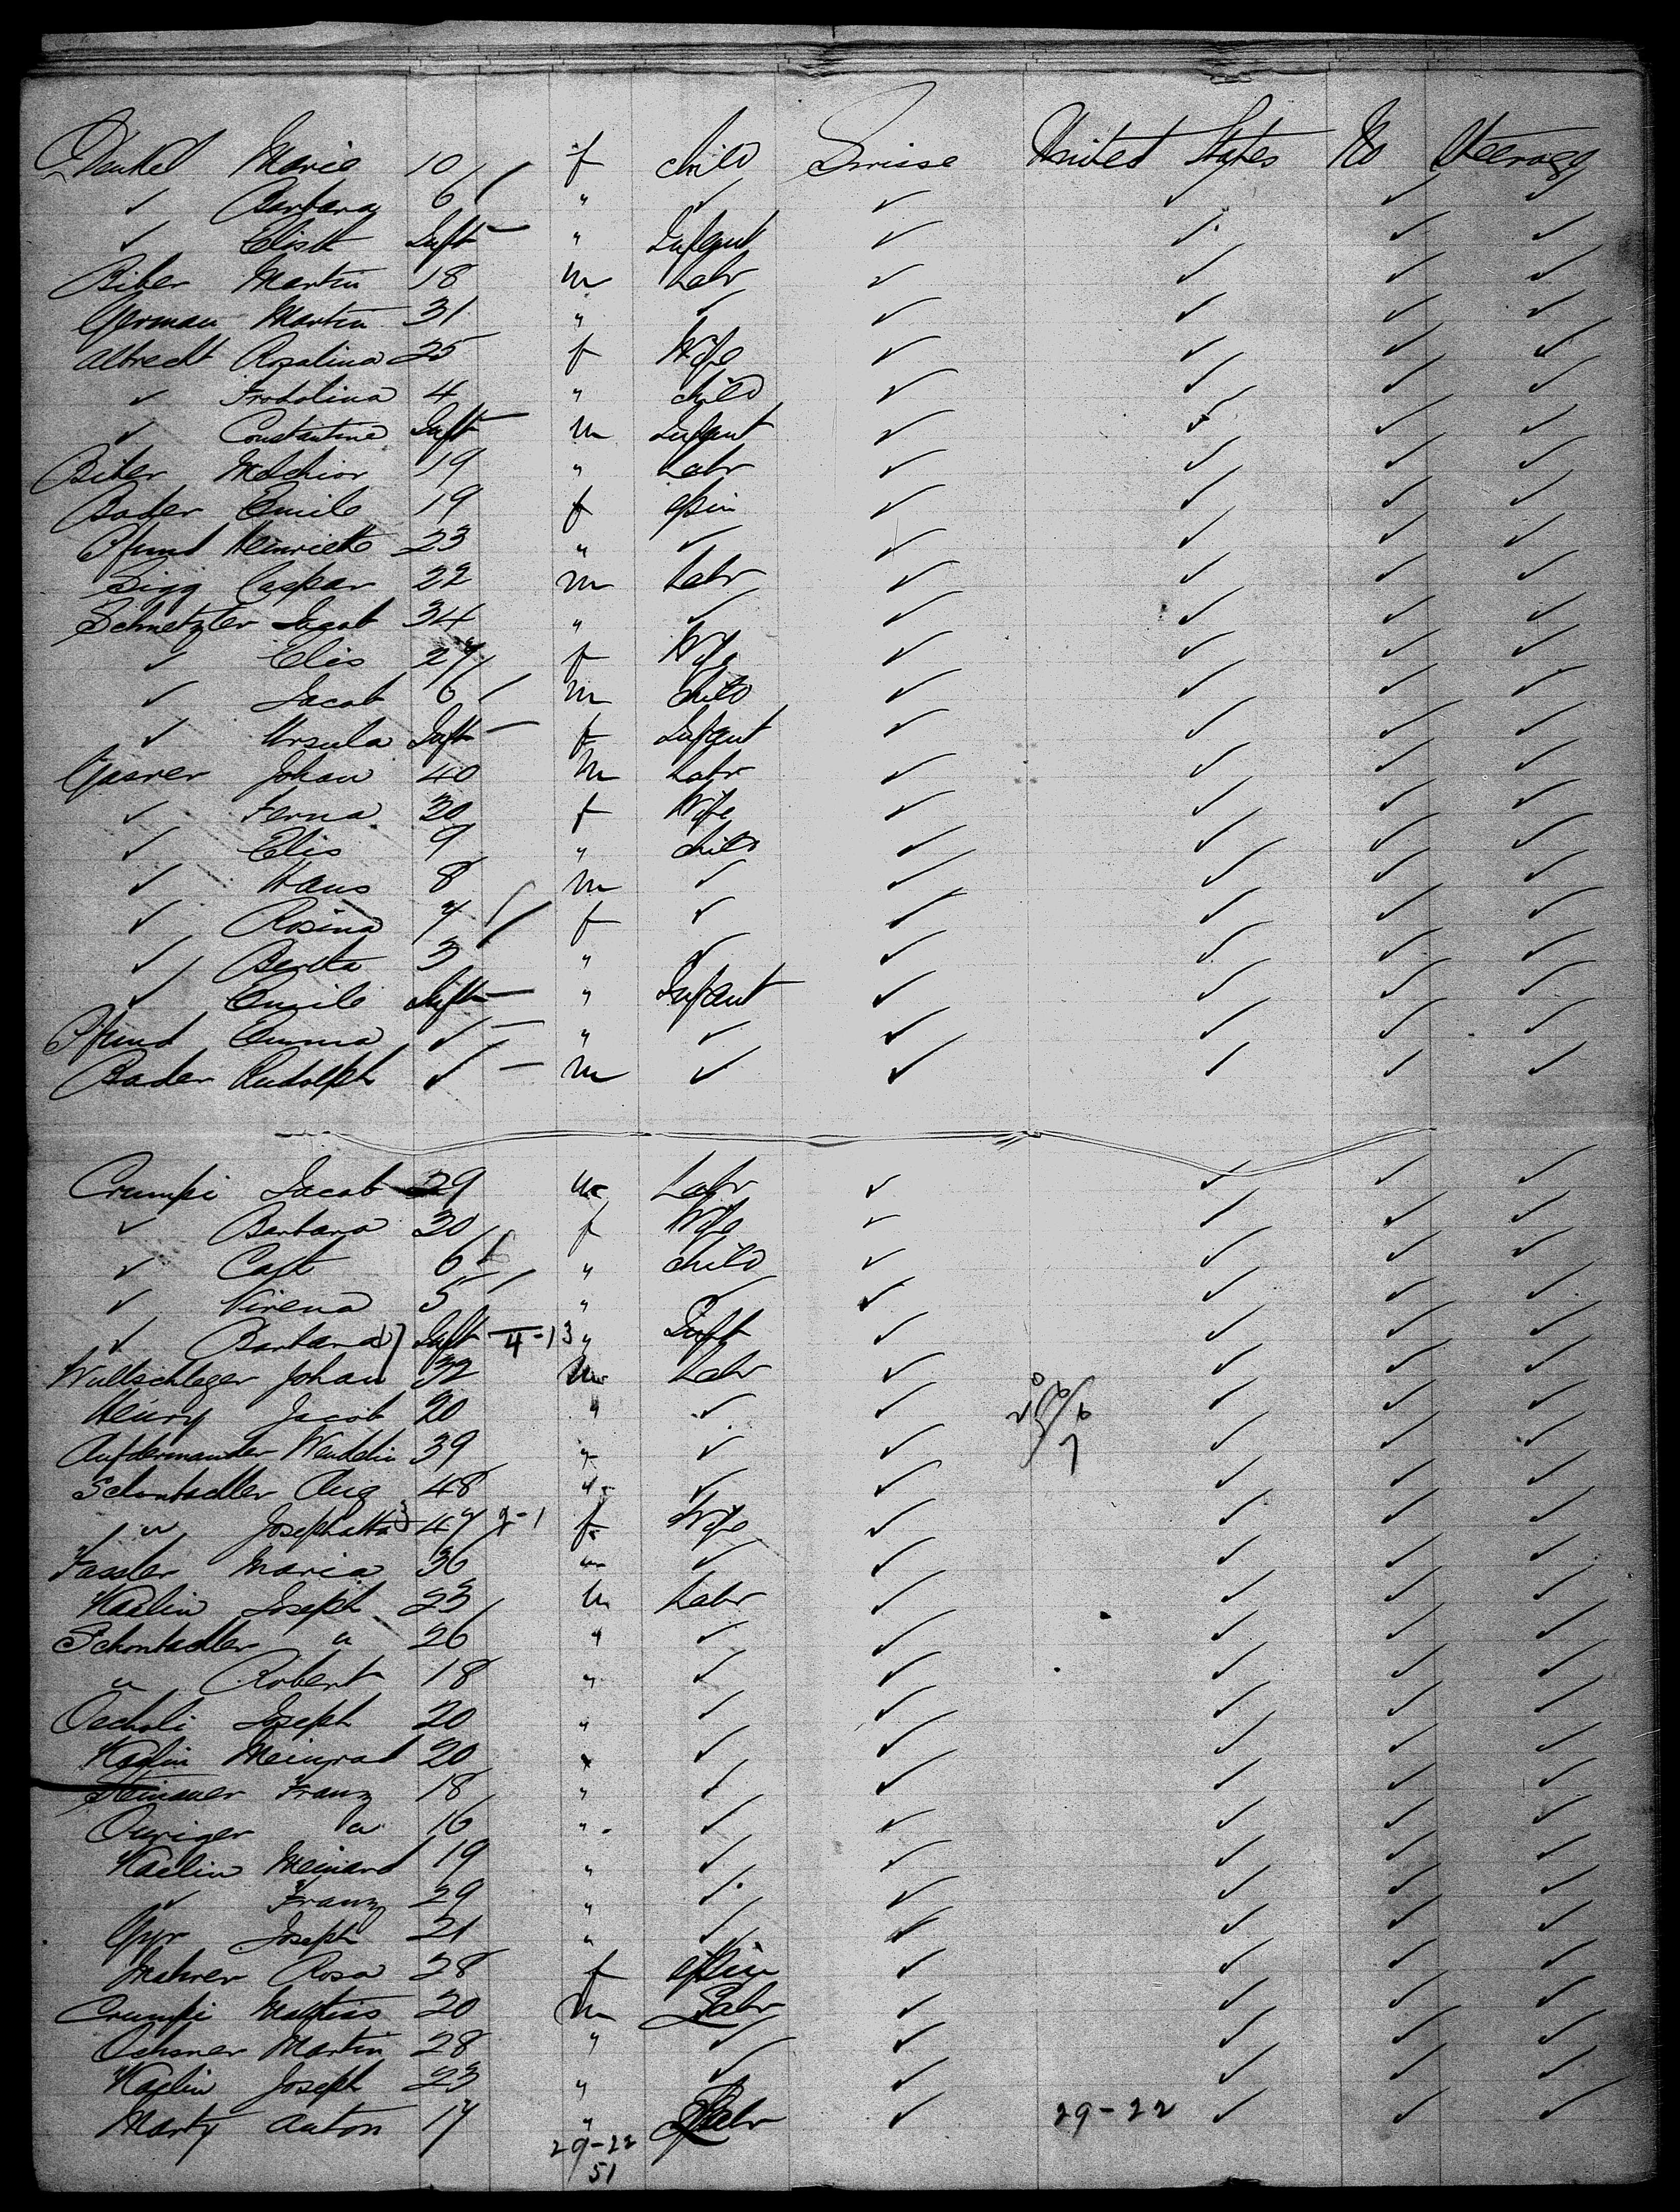 Denkel Marie 10 f child Swisse United States No Steerage
✓ Barbara 6 " ✓ ✓ ✓ ✓ ✓
✓ Elisth Inft " Infant ✓ ✓ ✓ ✓
Biber Martin 18 m Labr ✓ ✓ ✓ ✓
German Martin 31 " ✓ ✓ ✓ ✓ ✓
Albrecht Rosalina 25 f Wife ✓ ✓ ✓ ✓
✓ Frodolina 4 " child ✓ ✓ ✓ ✓
✓ Constantine Inft m Infant ✓ ✓ ✓ ✓
Biber Melchior 19 " Labr ✓ ✓ ✓ ✓
Bader Emile 19 f spin ✓ ✓ ✓ ✓
Pfund Heinriette 23 " ✓ ✓ ✓ ✓ ✓
Sigg Caspar 22 m Labr ✓ ✓ ✓ ✓
Schnetzler Jacob 34 " ✓ ✓ ✓ ✓ ✓
✓ Elis 27 f Wife ✓ ✓ ✓ ✓
✓ Jacob 6 m child ✓ ✓ ✓ ✓
✓ Ursula Inft f Infant ✓ ✓ ✓ ✓
Gasner Johan 40 m Labr ✓ ✓ ✓ ✓
✓ Ferna 30 f Wife ✓ ✓ ✓ ✓
✓ Elis 9 " child ✓ ✓ ✓ ✓
✓ Hans 8 m ✓ ✓ ✓ ✓ ✓
✓ Rosina 7 f ✓ ✓ ✓ ✓ ✓
✓ Berta 3 " ✓ ✓ ✓ ✓ ✓
✓ Emile Inft " Infant ✓ ✓ ✓ ✓
Pfund Emma ✓ " ✓ ✓ ✓ ✓ ✓
Bader Rudolph ✓ m ✓ ✓ ✓ ✓ ✓
Crumpi Jacob 29 m Labr ✓ ✓ ✓ ✓
✓ Barbara 30 f Wife ✓ ✓ ✓ ✓
✓ Cath 6 " child ✓ ✓ ✓ ✓
✓ Virena 5 " ✓ ✓ ✓ ✓ ✓
✓ Barbara Inft 4-13 " Inft ✓ ✓ ✓ ✓
Wullschleger Johan 32 m Labr ✓ ✓ ✓ ✓
Henry Jacob 20 " ✓ ✓ ✓ ✓ ✓
Aufdermauder Wendelin 39 " ✓ ✓ ✓ ✓ ✓
Schonbadler Aug 48 " ✓ ✓ ✓ ✓ ✓
" Josephatta 47 2-1 f Wife ✓ ✓ ✓ ✓
Fassler Maria 36 " ✓ ✓ ✓ ✓ ✓
Kaelin Joseph 23 m Labr ✓ ✓ ✓ ✓
Schonbadler " 26 " ✓ ✓ ✓ ✓ ✓
" Robert 18 " ✓ ✓ ✓ ✓ ✓
Oechsli Joseph 20 " ✓ ✓ ✓ ✓ ✓
Kaelin Meinrad 20 " ✓ ✓ ✓ ✓ ✓
Steinauer Franz 18 " ✓ ✓ ✓ ✓ ✓
Ouriger " 16 " ✓ ✓ ✓ ✓ ✓
Kaelin Meinard 19 " ✓ ✓ ✓ ✓ ✓
✓ Franz 29 " ✓ ✓ ✓ ✓ ✓
Gyr Joseph 21 " ✓ ✓ ✓ ✓ ✓
Mahrer Rosa 28 f spin ✓ ✓ ✓ ✓
Crumpi Mathias 20 m Labr ✓ ✓ ✓ ✓
Ochsner Martin 28 " ✓ ✓ ✓ ✓ ✓
Kaelin Joseph 23 " ✓ ✓ ✓ ✓ ✓
Marty Anton 17 " Labr ✓ 29-22 ✓ ✓ ✓
29-22
51